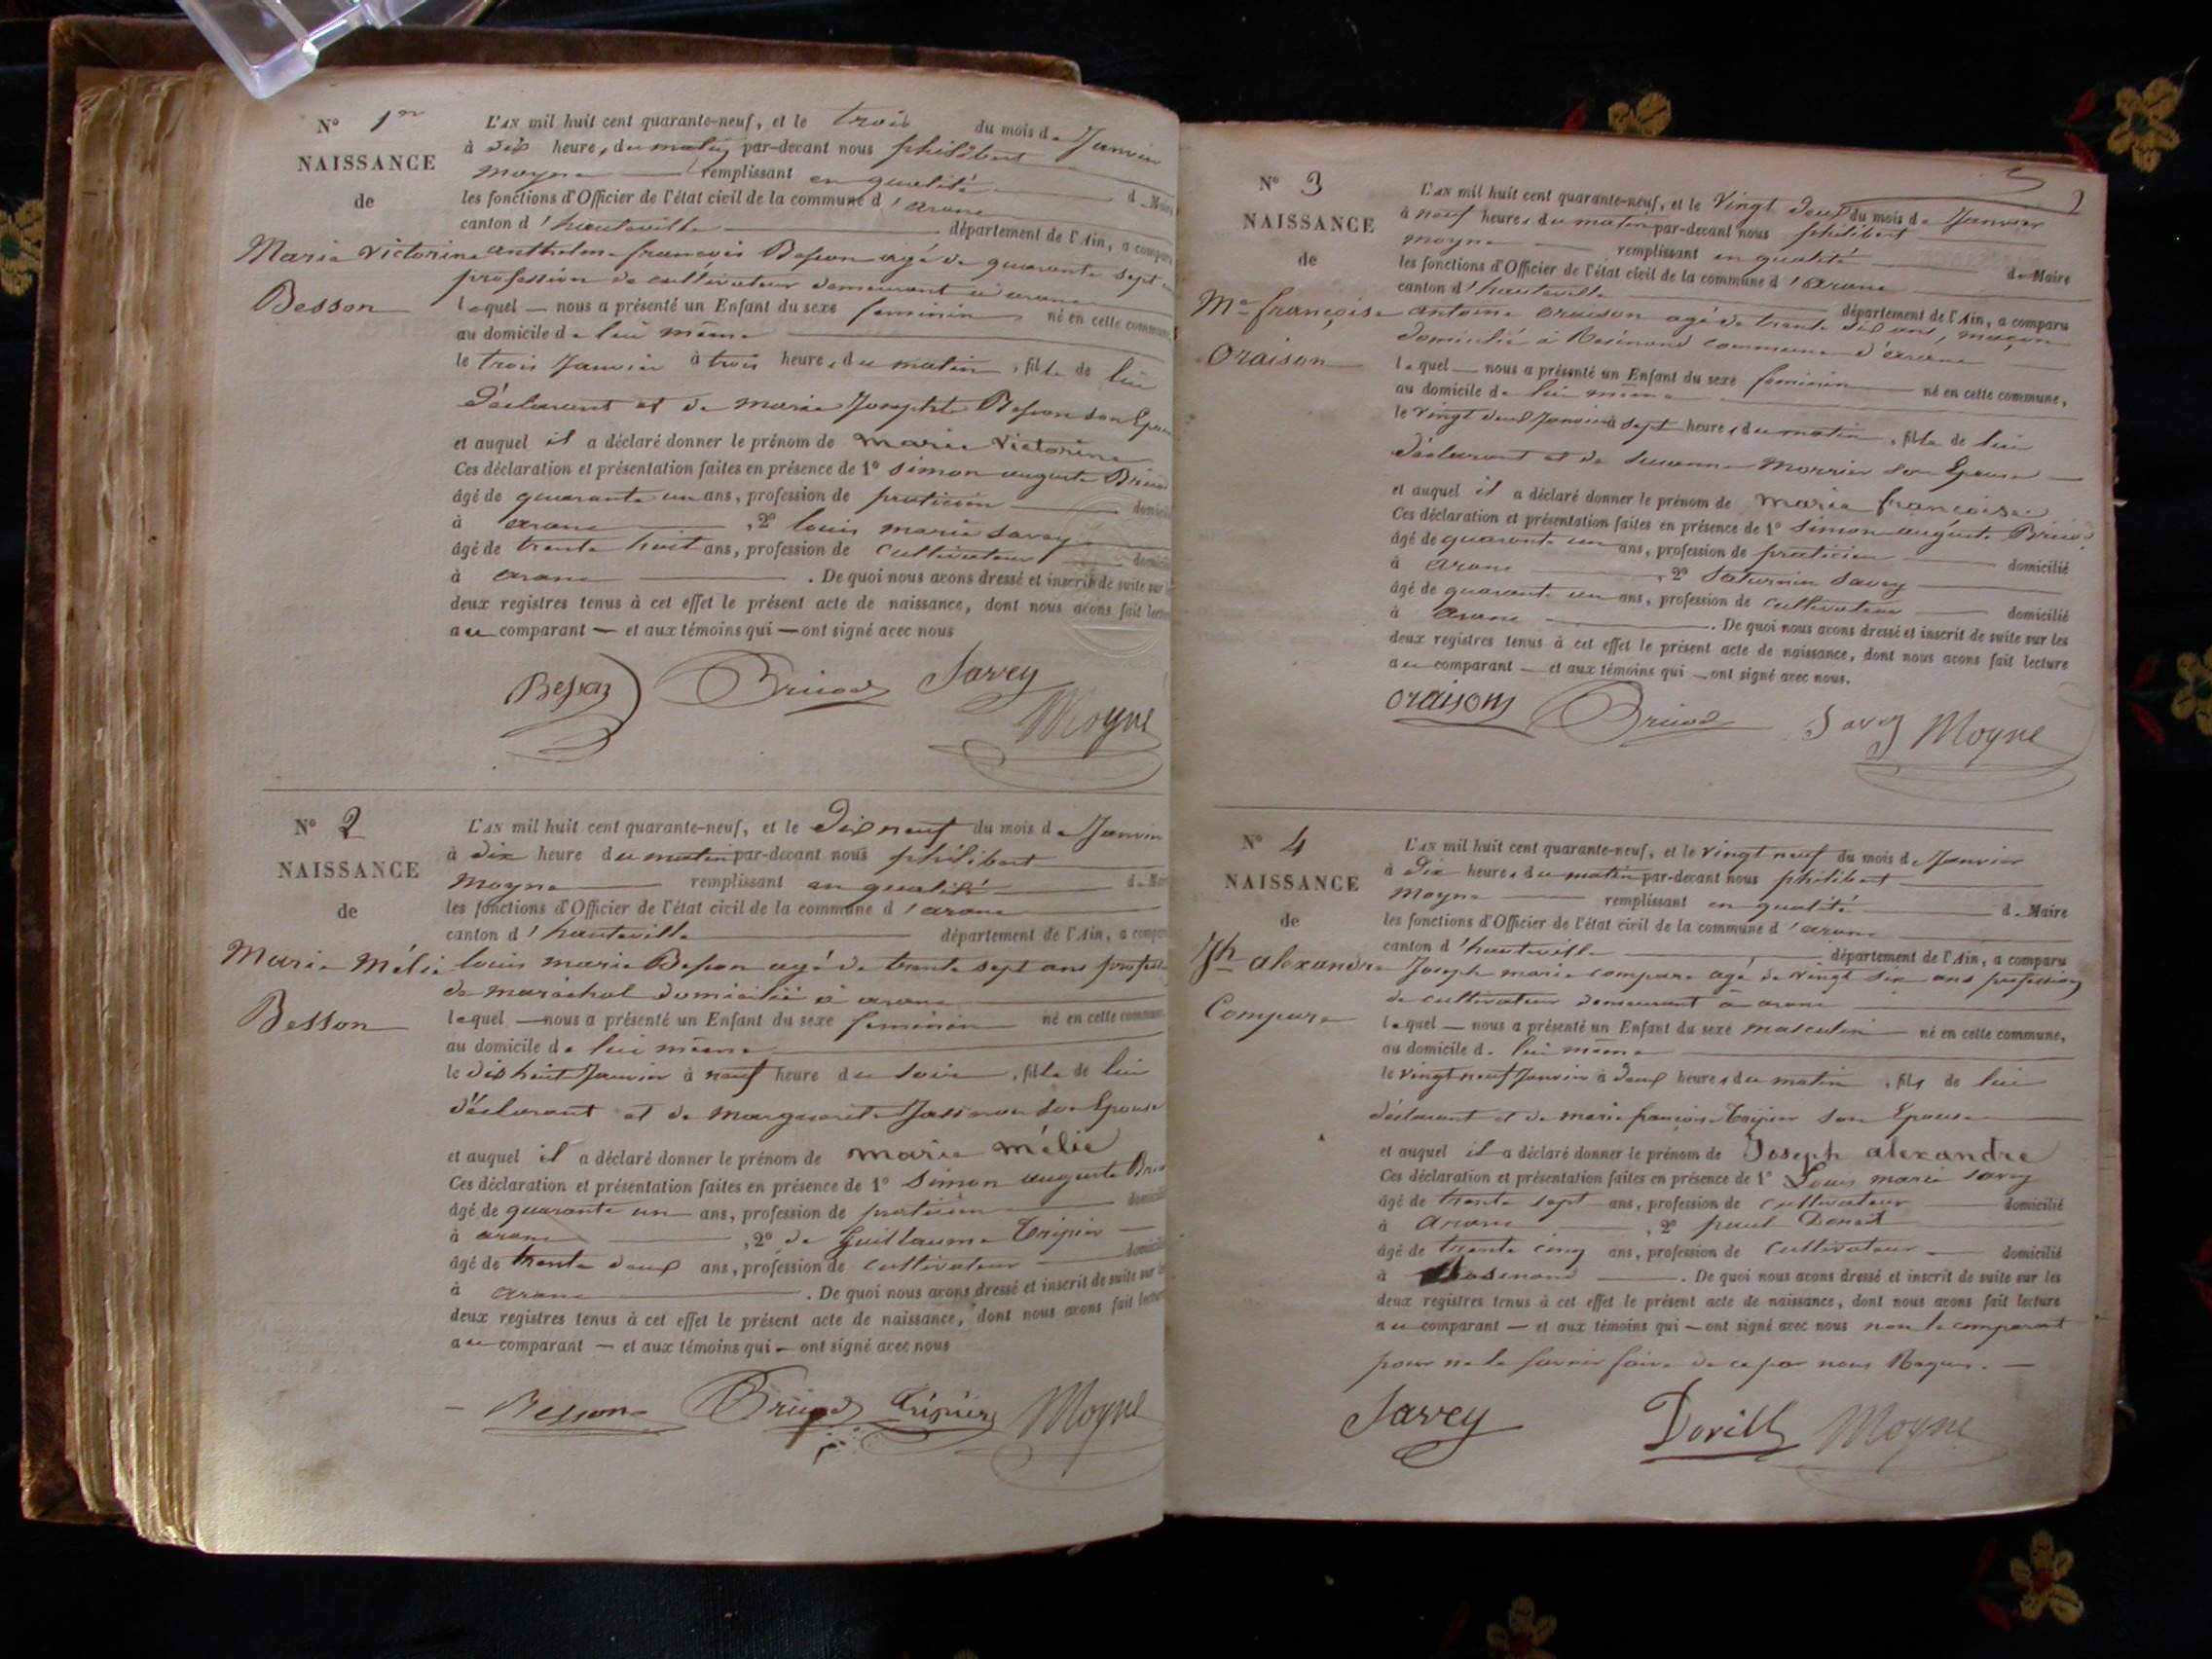 N° 1er
NAISSANCE
de
Marie Victorine
Besson
L'AN mil huit cent quarante-neuf, et le trois du mois de Janvier
à dix heures du matin par-devant nous philibert
moyne remplissant en qualité de Maire
les fonctions d'Officier de l'état civil de la commune d'arane
canton d'hauteville département de l'Ain, a comparu
anthelme françois Besson agé de quarante sept ans
profession de cultivateur demeurant à arane
lequel nous a présenté un Enfant du sexe feminin né en cette commune
au domicile de lui même
le trois Janvier à trois heures du matin, fille de lui
déclarant et de marie Josephte Besson son Epouse
et auquel il a déclaré donner le prénom de marie Victorine
Ces déclaration et présentation faites en présence de 1° simon auguste
âgé de quarante un ans, profession de praticien domicilié
à arane, 2° louis marie savey
âgé de trente huit ans, profession de cultivateur domicilié
à arane. De quoi nous avons dressé et inscrit de suite sur les
deux registres tenus à cet effet le présent acte de naissance, dont nous avons fait lecture
au comparant et aux témoins qui ont signé avec nous
Besson Savey
Moyne
N° 2
NAISSANCE
de
Marie Mélie
Besson
L'AN mil huit cent quarante-neuf, et le dix neuf du mois de Janvier
à dix heure du matin par-devant nous philibert
moyne remplissant en qualité de Maire
les fonctions d'Officier de l'état civil de la commune d'arane
canton d'hauteville département de l'Ain, a comparu
louis marie Besson agé de trente sept ans profession
de maréchal domicilié à arane
lequel nous a présenté un Enfant du sexe feminin né en cette commune
au domicile de lui même
le dix huit Janvier à neuf heure du soir, fille de lui
déclarant et de marguerite son Epouse
et auquel il a déclaré donner le prénom de marie mélie
Ces déclaration et présentation faites en présence de 1° simon auguste
âgé de quarante un ans, profession de praticien domicilié
à arane, 2° de Guillaume Tripier
âgé de trente deux ans, profession de cultivateur domicilié
à arane. De quoi nous avons dressé et inscrit de suite sur les
deux registres tenus à cet effet le présent acte de naissance, dont nous avons fait lecture
au comparant et aux témoins qui ont signé avec nous
Besson Tripier Moyne
2
N° 3
NAISSANCE
de
Me françoise
Oraison
L'AN mil huit cent quarante-neuf, et le Vingt deux du mois de Janvier
à neuf heures du matin par-devant nous philibert
moyne remplissant en qualité de Maire
les fonctions d'Officier de l'état civil de la commune d'arane
canton d'hauteville département de l'Ain, a comparu
antoine oraison agé de trente six ans, maçon
domicilié à Résinand commune d'arane
lequel nous a présenté un Enfant du sexe feminin né en cette commune,
au domicile de lui même
le vingt deux Janvier à sept heures du matin, fille de lui
déclarant et de susanne son Epouse
et auquel il a déclaré donner le prénom de marie françoise
Ces déclaration et présentation faites en présence de 1° simon auguste
âgé de quarante un ans, profession de praticien domicilié
à arane, 2° saturnin savey
âgé de quarante un ans, profession de cultivateur domicilié
à arane. De quoi nous avons dressé et inscrit de suite sur les
deux registres tenus à cet effet le présent acte de naissance, dont nous avons fait lecture
au comparant et aux témoins qui ont signé avec nous.
oraison Savey Moyne
N° 4
NAISSANCE
de
Jh alexandre
Compare
L'AN mil huit cent quarante-neuf, et le vingt neuf du mois de Janvier
à dix heures du matin par-devant nous philibert
moyne remplissant en qualité de Maire
les fonctions d'Officier de l'état civil de la commune d'arane
canton d'hauteville département de l'Ain, a comparu
Joseph marie compare agé de vingt six ans profession
de cultivateur demeurant à arane
lequel nous a présenté un Enfant du sexe masculin né en cette commune,
au domicile de lui même
le vingt neuf Janvier à deux heures du matin, fils de lui
déclarant et de marie françoise Tripier son Epouse
et auquel il a déclaré donner le prénom de Joseph alexandre
Ces déclaration et présentation faites en présence de 1° Louis marie savey
âgé de trente sept ans, profession de cultivateur domicilié
à arane, 2° paul
âgé de trente cinq ans, profession de cultivateur domicilié
à Résinand. De quoi nous avons dressé et inscrit de suite sur les
deux registres tenus à cet effet le présent acte de naissance, dont nous avons fait lecture
au comparant et aux témoins qui ont signé avec nous non le comparant
pour ne le savoir faire de ce par nous Requis.
Savey Moyne